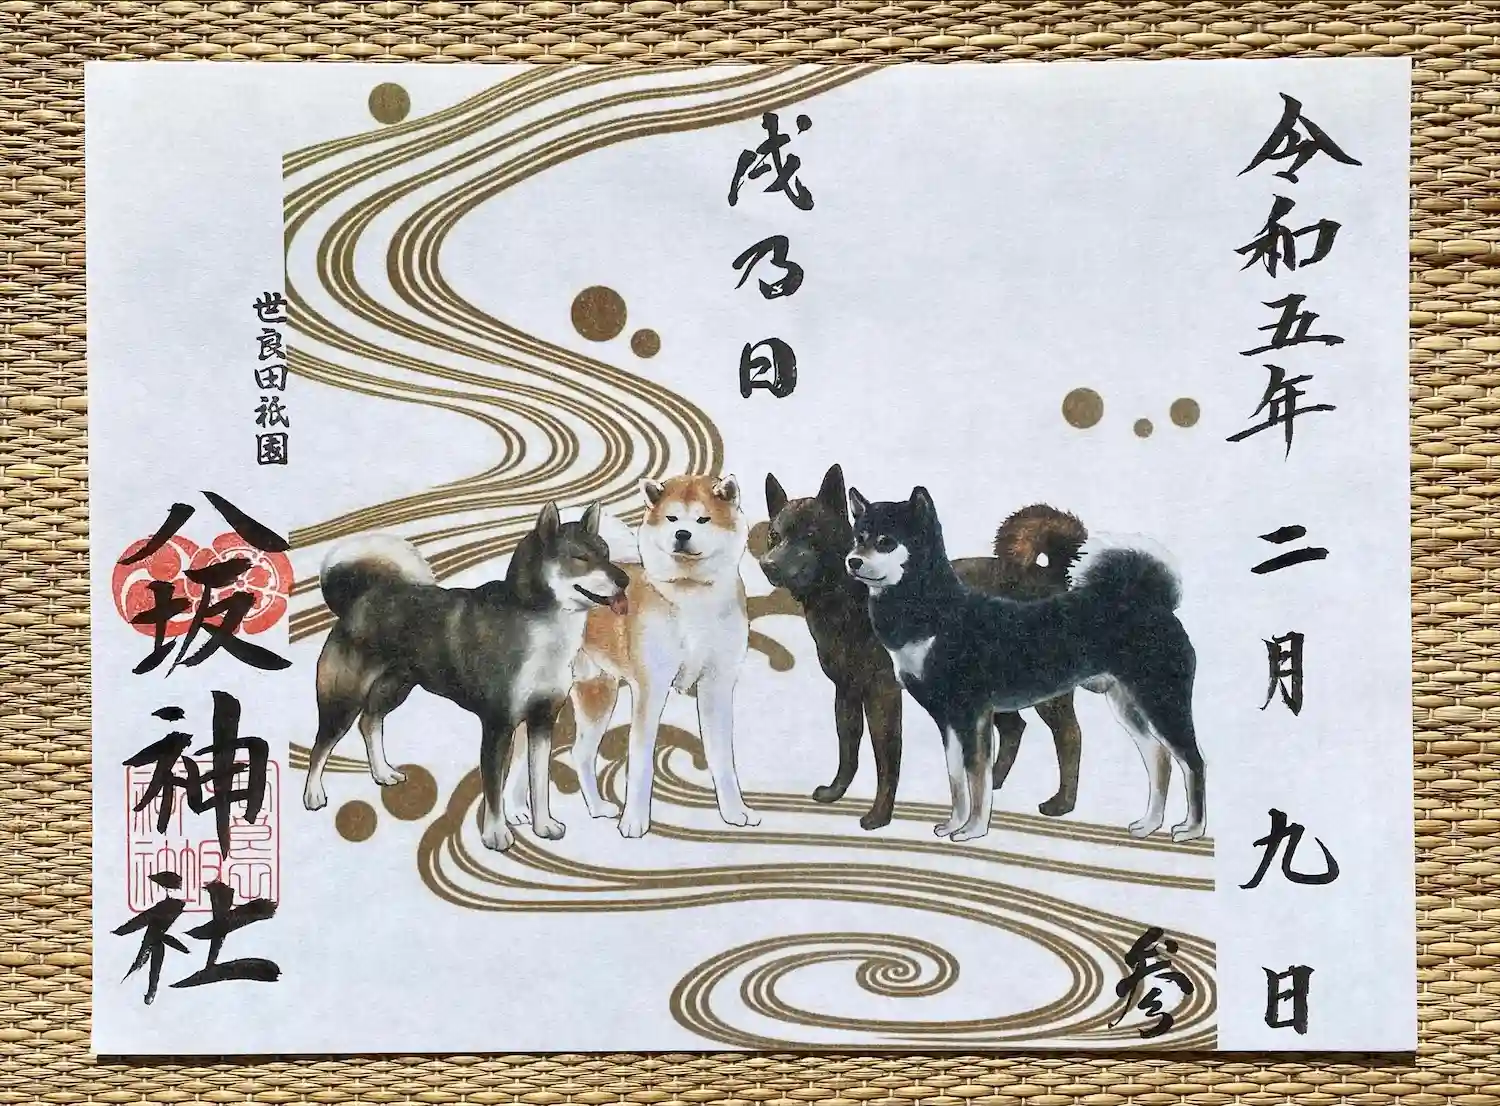 令和五年 二月 九日
参
戌乃日
世良田祇園
八坂神社